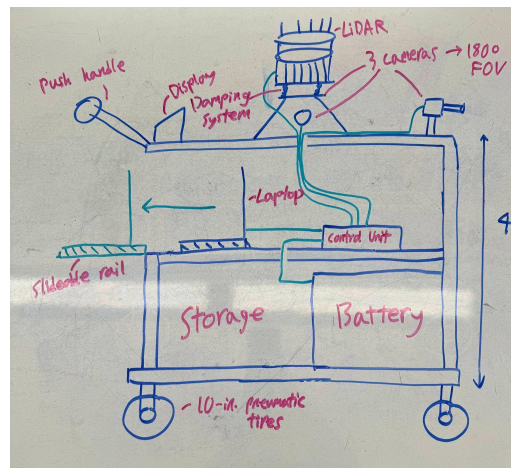 LiDAR
3 cameras → 180°
FOV
Push handle
Display
Damping
system
Laptop
Control Unit
4
Slideable rail
Storage
Battery
10-in. pneumatic
tires